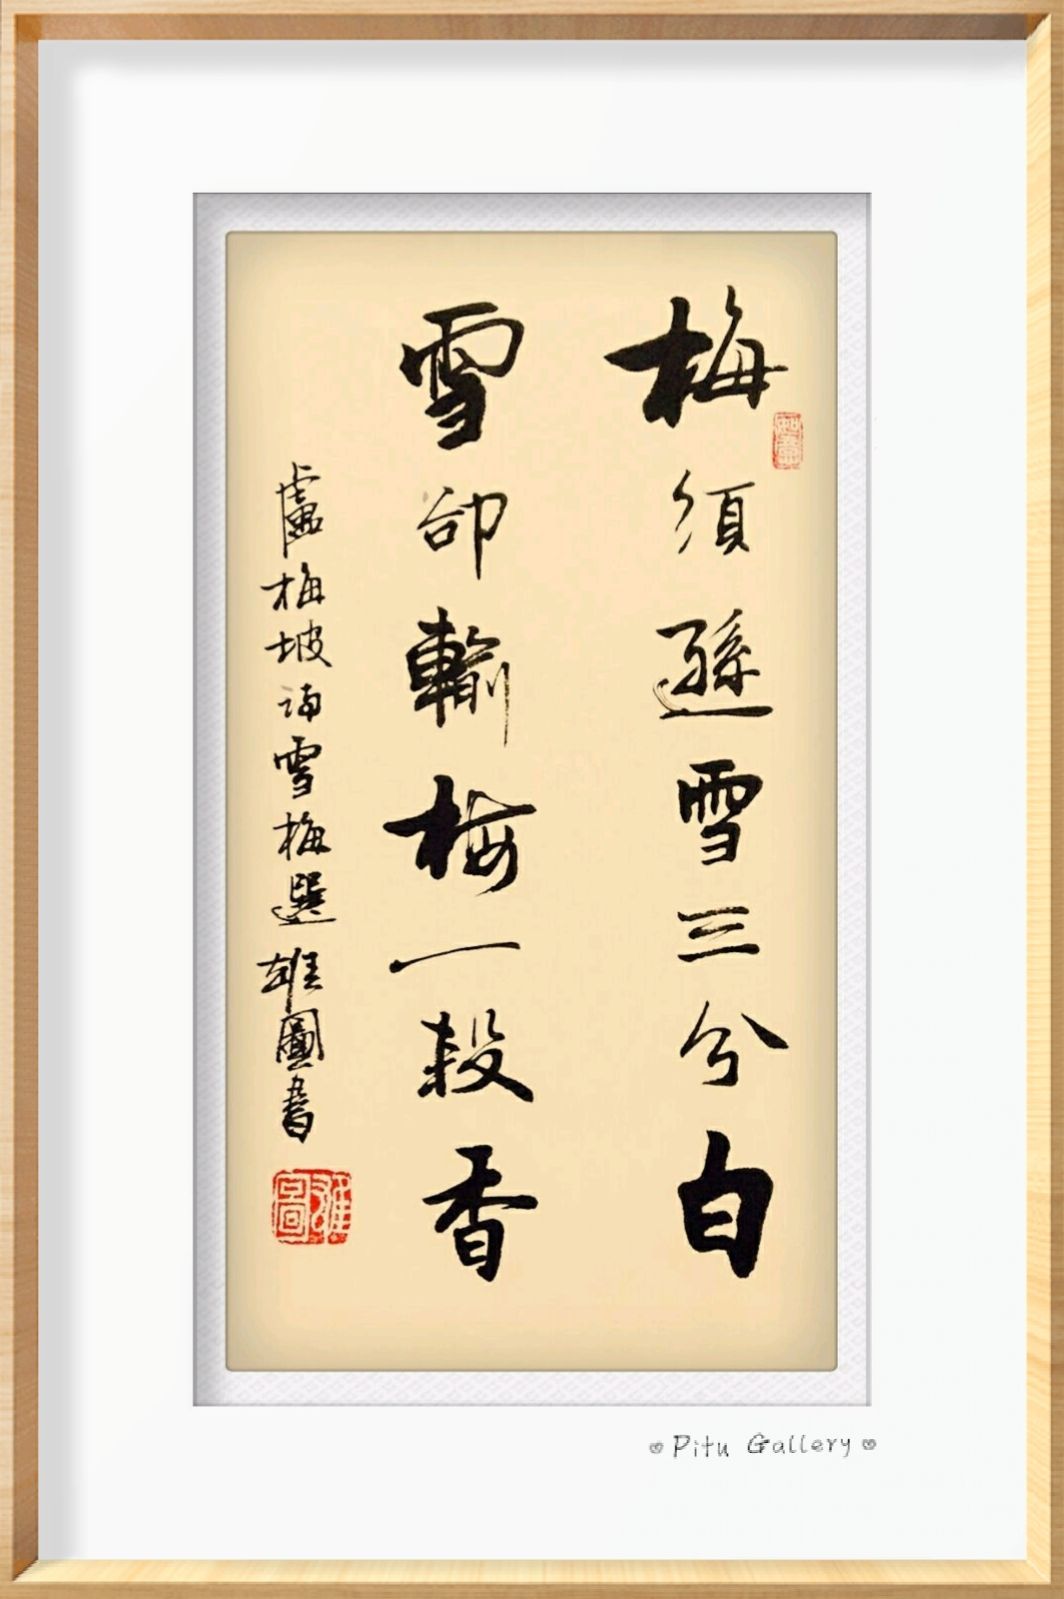 梅須遜雪三分白
如意
雪卻輸梅一段香
盧梅坡雪梅選雄圖書
雄圖
Pitu Gallery